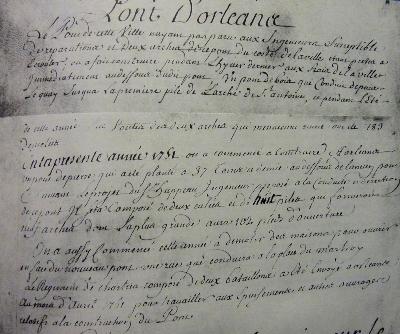 Pont D'orleans
Le Pont de cette Ville n'ayant pas paru aux Ingenieurs Susceptible
de reparations et deux arches de ce pont du costé de la ville etant prets a
on a fait construire pendant l'hyver dernier aux frais de la ville
Immediatement audessous dudit pont Un pont de bois qui Conduit depuis
le quay Jusqu'a la premiere pile de L'arche de St antoine, et pendant L'Eté
de cette année deux arches qui menacoient ruine
Cette presente année 1751 on a commencé a Construire a Orleans
un pont de pierre qui a été planté a 37 toises au dessous de l'ancien pont
Suivant le projet du Sr Ingenieur preposé a la Conduite et direction
de ce pont Il sera Composé de deux culées et de huit piles qui formeront
neuf arches dont la plus grande aura pieds d'ouverture
On a aussy Commencé cette année a demolir des maisons pour ouvrir
en face du nouveau pont une rue qui conduira a la place du martroy
Le Regiment de chartres composé de deux bataillons a été Envoyé a orleans
Au mois d'Avril 1751 pour travailler aux Epuisements et autres ouvrages
relatifs a la construction du Pont